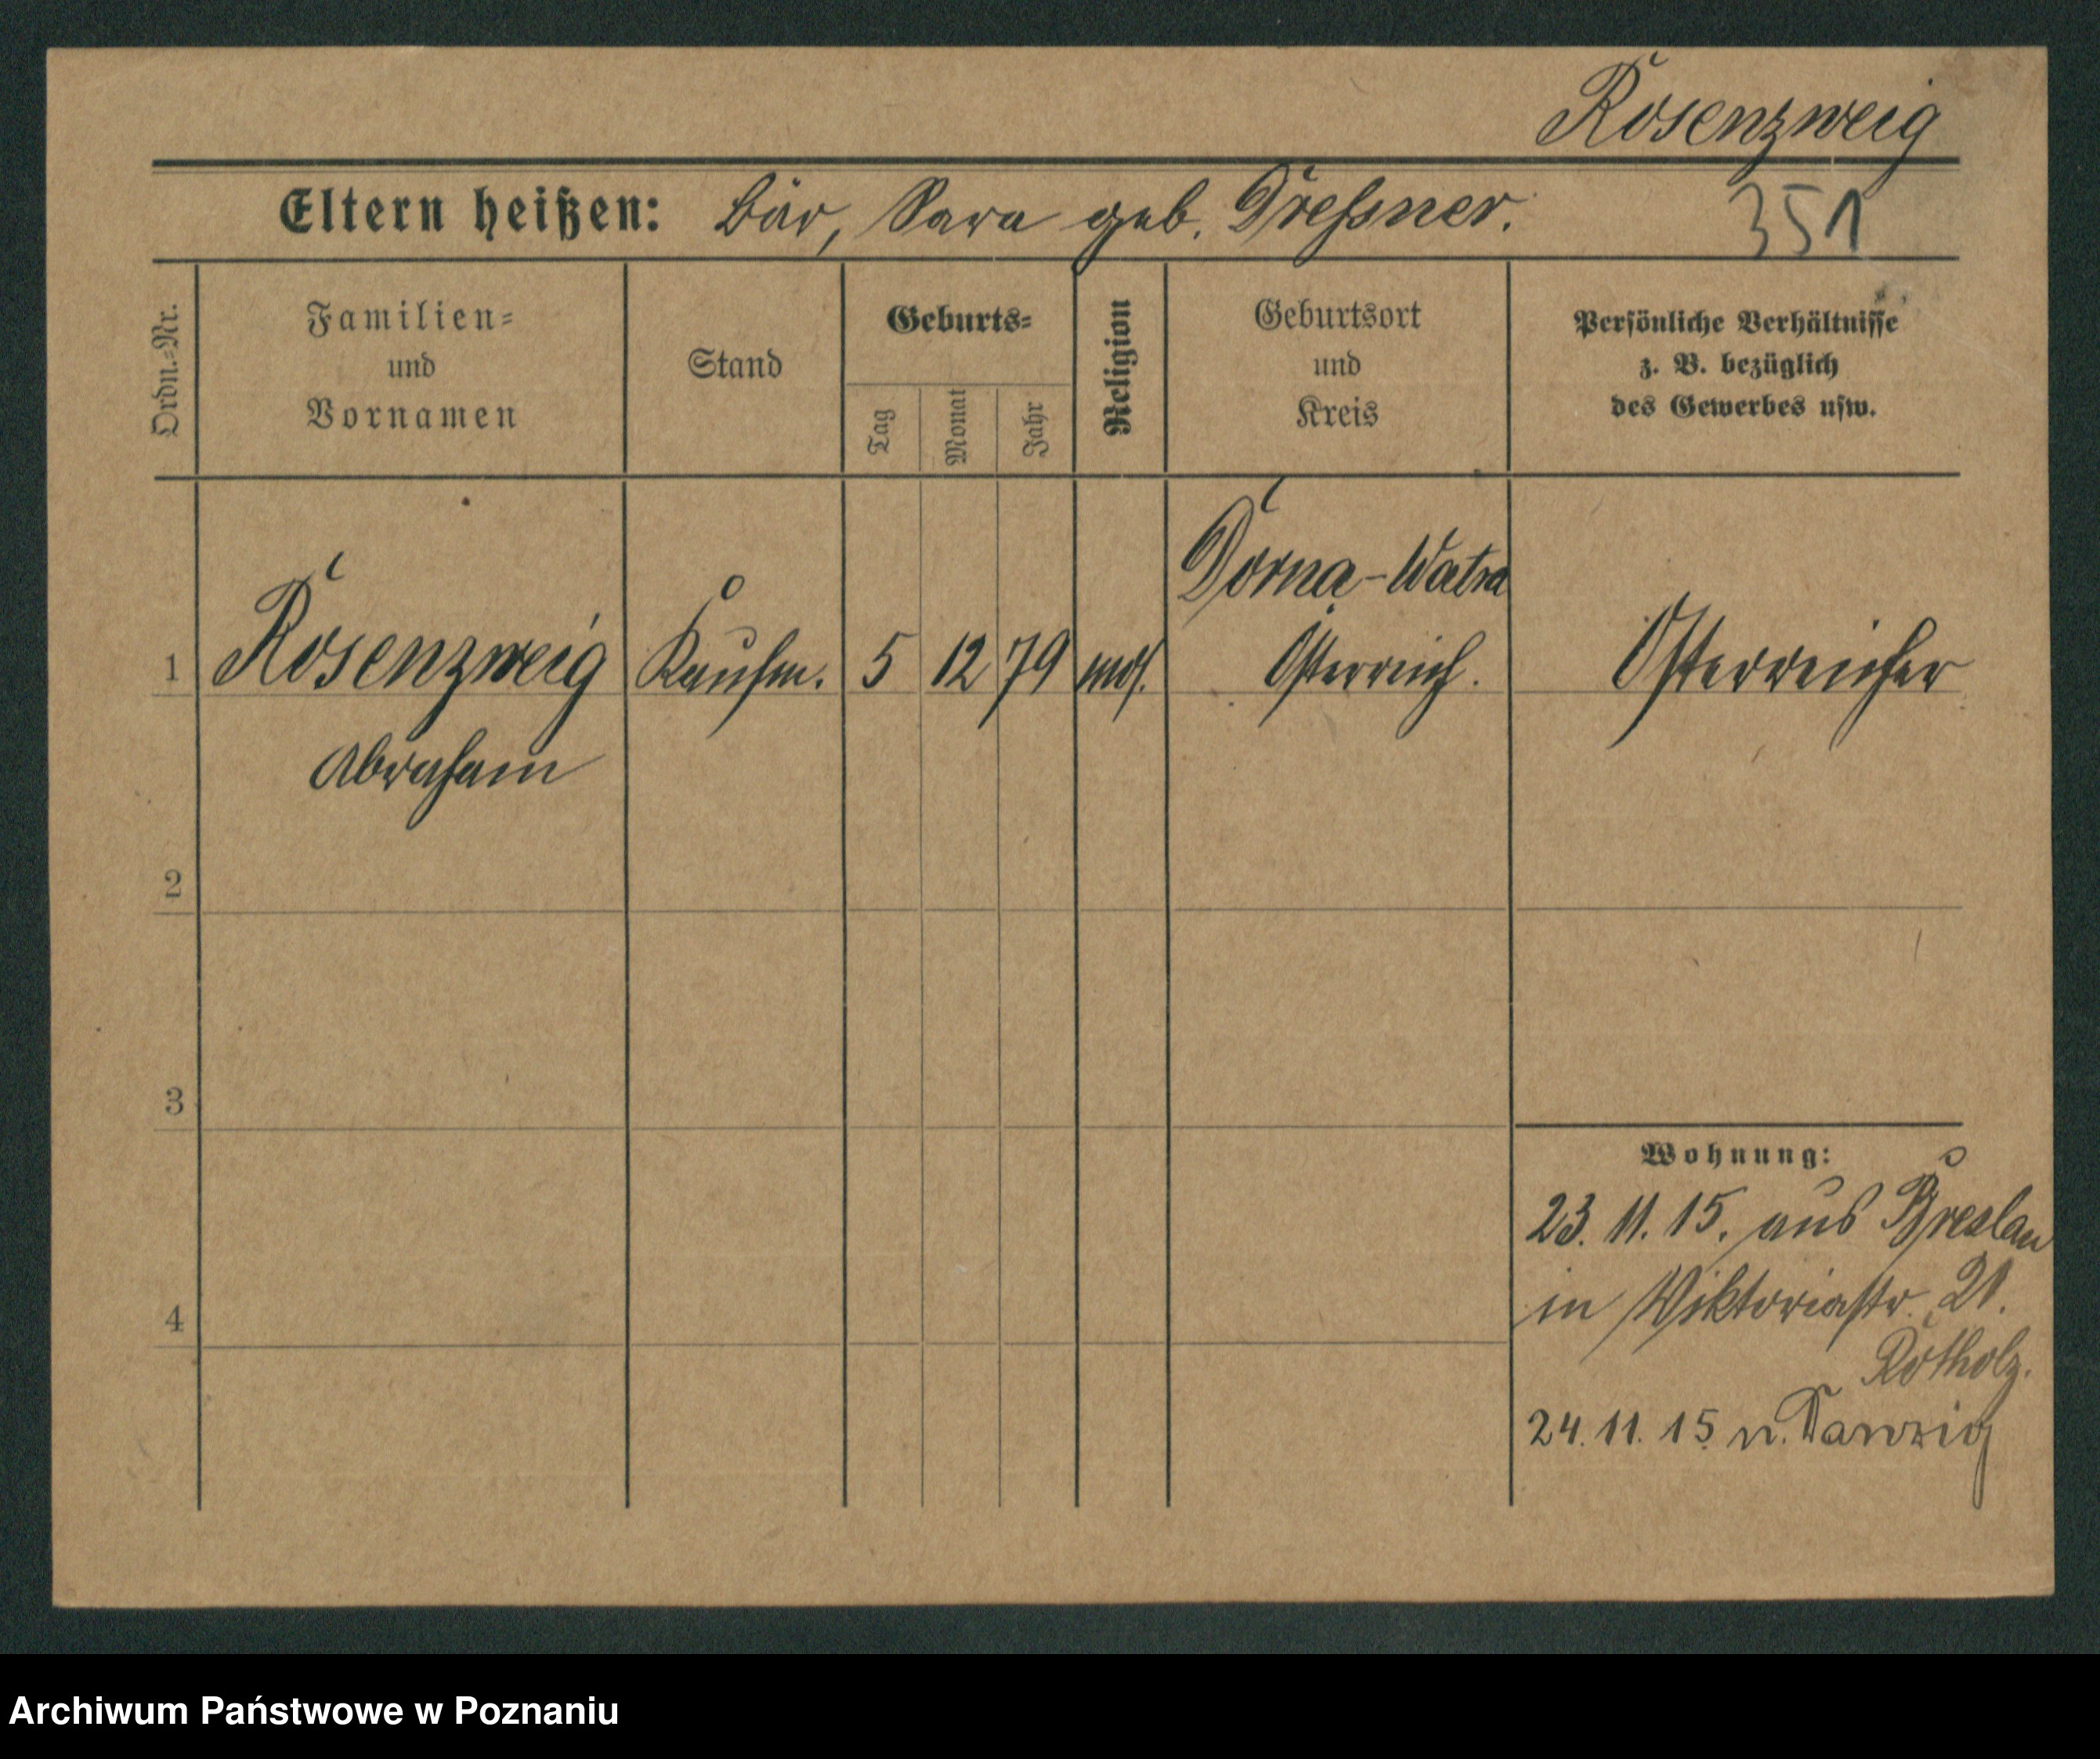 Rosenzweig
Eltern heißen: Bär, Sara geb. Dreßner.
351
Ordn.-Nr.
Familien-
und
Vornamen
Stand
Geburts-
Tag
Monat
Jahr
Religion
Geburtsort
und
Kreis
Persönliche Verhältnisse
z. B. bezüglich
des Gewerbes usw.
Dorna-Watra
1 Rosenzweig Kaufm. 5 12 79 mos. Österreich. Österreicher
Abraham
2
3
Wohnung:
23. 11. 15. aus Breslau
in Viktoriastr. 21.
4
Rotholz.
24. 11. 15 n. Danzig
Archiwum Państwowe w Poznaniu